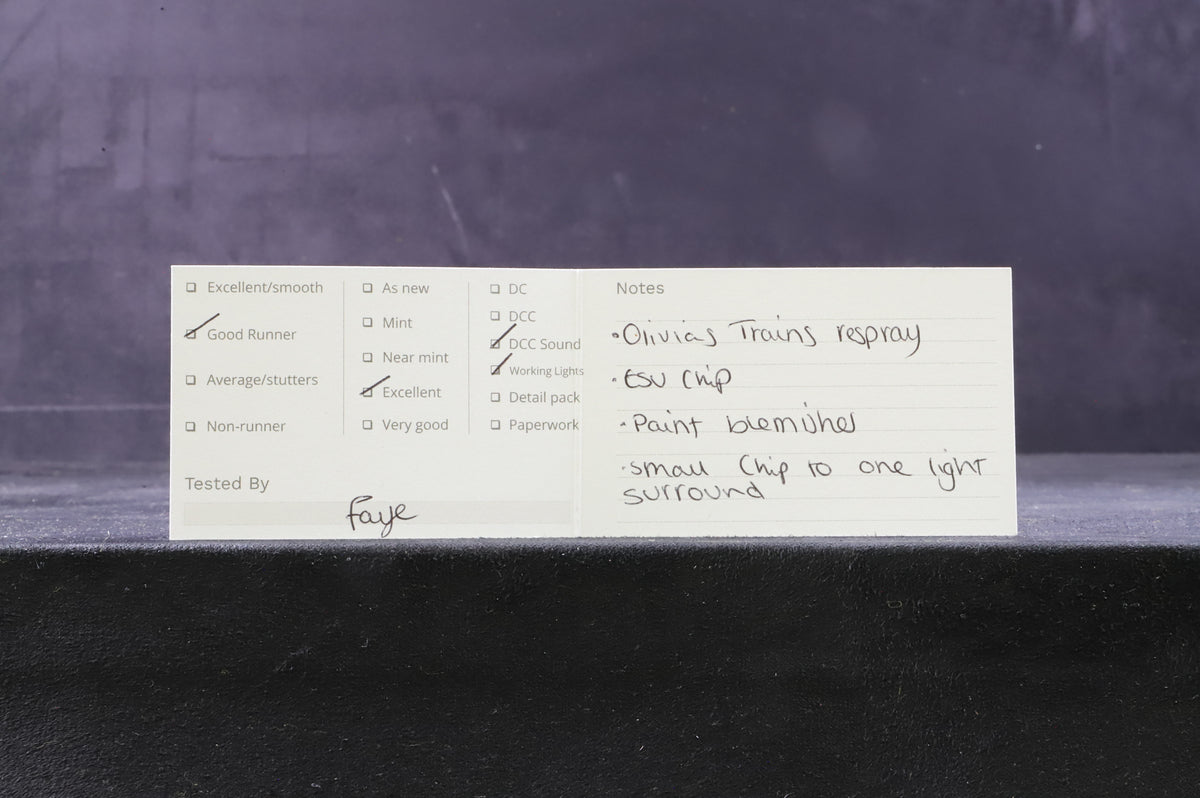 Excellent/smooth
Good Runner
Average/stutters
Non-runner
As new
Mint
Near mint
Excellent
Very good
DC
DCC
DCC Sound
Working Lights
Detail pack
Paperwork
Tested By
Faye
Notes
•Olivias Trains respray
•ESU Chip
•Paint blemishes
•small Chip to one light
surround